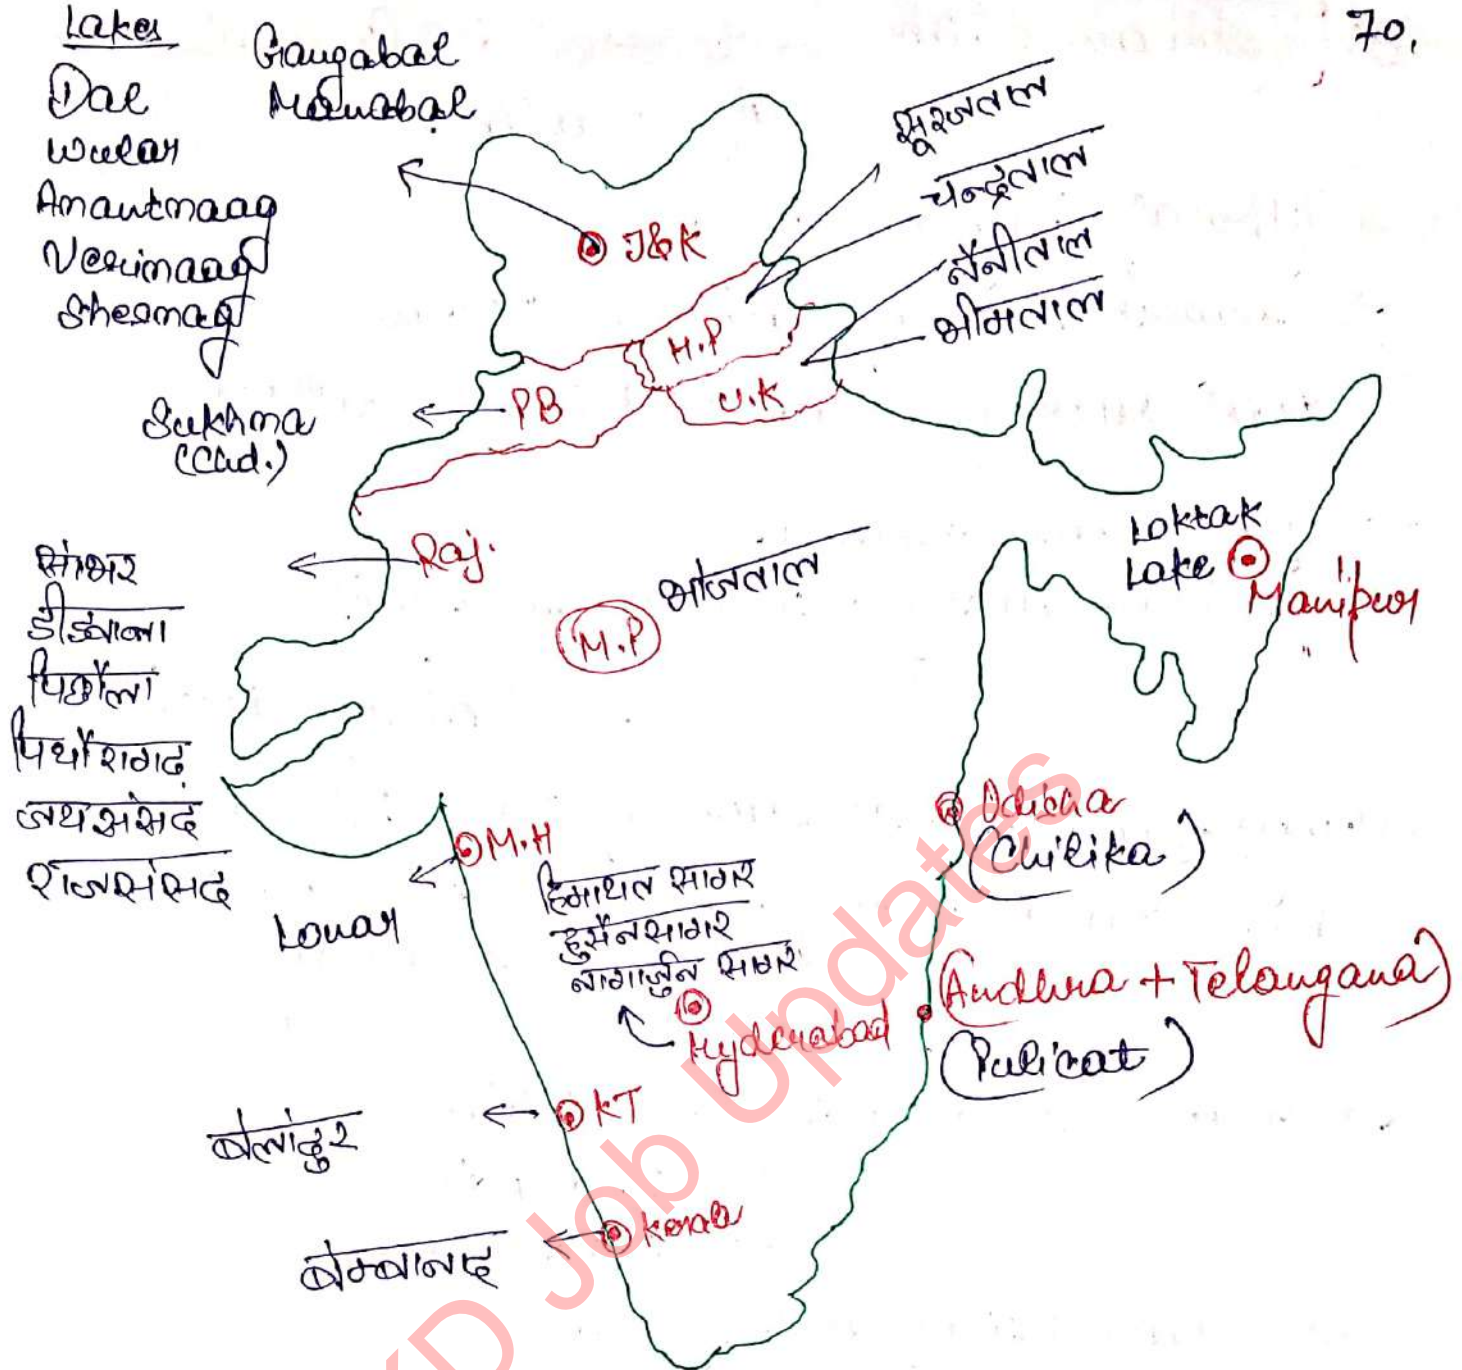 70.
Lakes
Dal
Wular
Anantnaag
Verinaag
Sheshnag
Gangabal
Manasbal
सूरजताल
चन्द्रताल
नैनीताल
भीमताल
J&K
H.P
U.K
PB
Sukhna
(Chd.)
Raj.
सांभर
डीडवाना
पिछौला
पिथौरागढ़
जयसंमद
राजसंमद
भोजताल
M.P
Loktak
Lake
Manipur
M.H
Lonar
हिमायत सागर
हुसैनसागर
नागार्जुन सागर
Hyderabad
Odisha
(Chilika)
(Andhra + Telangana)
(Pulicat)
KT
बेलांदुर
Kerala
बेम्बानद
KD Job Updates